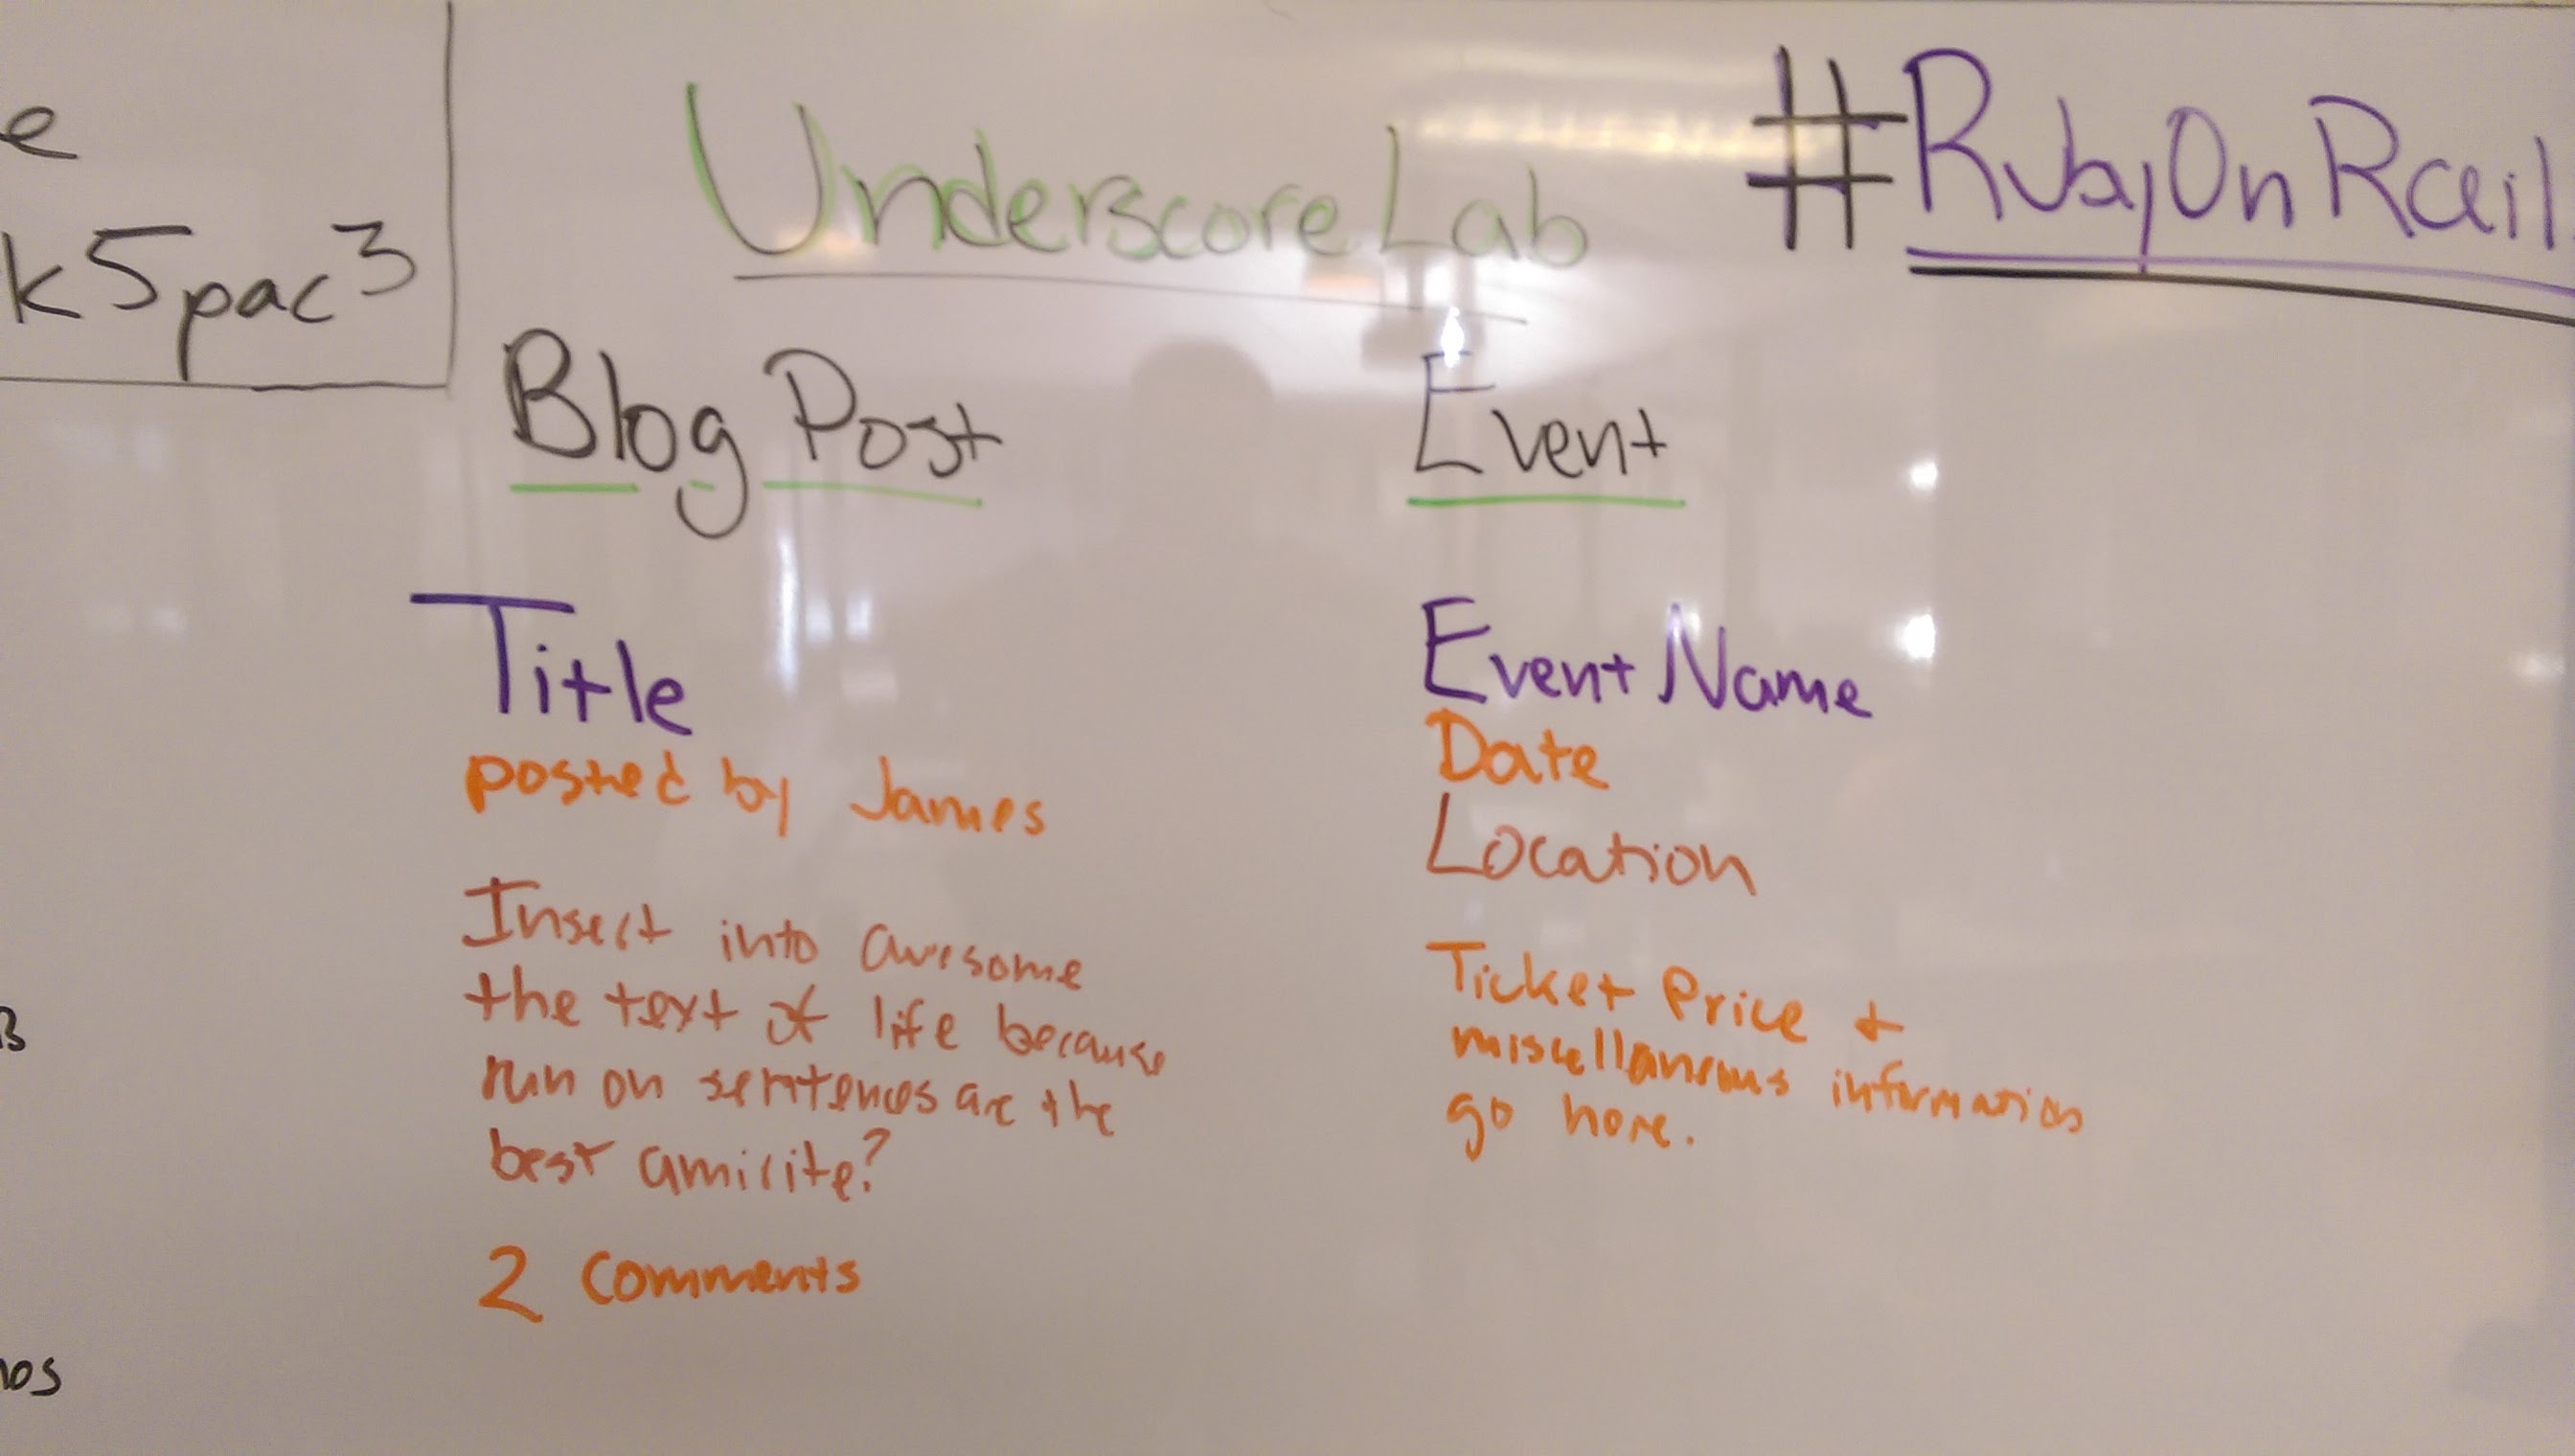 e
k5pac3
Underscore Lab
#RubyOnRail
Blog Post
Title
posted by James
Insert into awesome
the text of life because
run on sentences are the
best amirite?
2 Comments
Event
Event Name
Date
Location
Ticket Price +
miscellaneous information
go here.